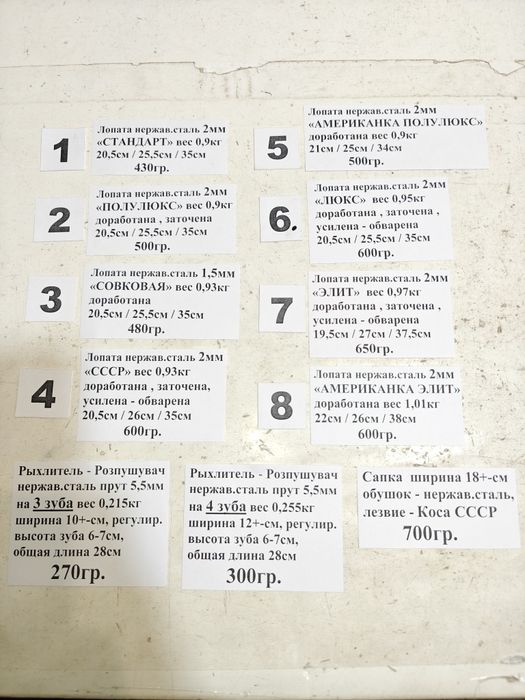 1
Лопата нержав.сталь 2мм
«СТАНДАРТ» вес 0,9кг
20,5см / 25,5см / 35см
430гр.
2
Лопата нержав.сталь 2мм
«ПОЛУЛЮКС» вес 0,9кг
доработана , заточена
20,5см / 25,5см / 35см
500гр.
3
Лопата нержав.сталь 1,5мм
«СОВКОВАЯ» вес 0,93кг
доработана
20,5см / 25,5см / 35см
480гр.
4
Лопата нержав.сталь 2мм
«СССР» вес 0,93кг
доработана , заточена,
усилена - обварена
20,5см / 26см / 35см
600гр.
5
Лопата нержав.сталь 2мм
«АМЕРИКАНКА ПОЛУЛЮКС»
доработана вес 0,9кг
21см / 25см / 34см
500гр.
6.
Лопата нержав.сталь 2мм
«ЛЮКС» вес 0,95кг
доработана , заточена ,
усилена - обварена
20,5см / 25,5см / 35см
600гр.
7
Лопата нержав.сталь 2мм
«ЭЛИТ» вес 0,97кг
доработана , заточена ,
усилена - обварена
19,5см / 27см / 37,5см
650гр.
8
Лопата нержав.сталь 2мм
«АМЕРИКАНКА ЭЛИТ»
доработана вес 1,01кг
22см / 26см / 38см
600гр.
Рыхлитель - Розпушувач
нержав.сталь прут 5,5мм
на 3 зуба вес 0,215кг
ширина 10+-см, регулир.
высота зуба 6-7см,
общая длина 28см
270гр.
Рыхлитель - Розпушувач
нержав.сталь прут 5,5мм
на 4 зуба вес 0,255кг
ширина 12+-см, регулир.
высота зуба 6-7см,
общая длина 28см
300гр.
Сапка ширина 18+-см
обушок - нержав.сталь,
лезвие - Коса СССР
700гр.